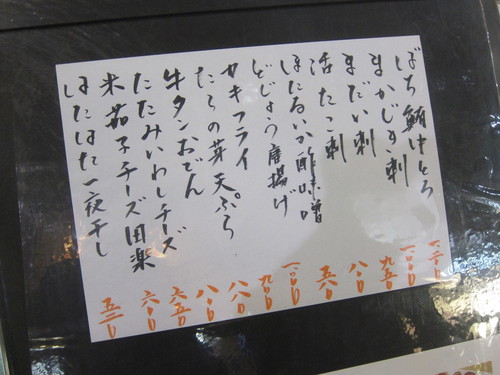 ばち鮪中とろ 一、二〇〇
まかじき刺 一、〇〇〇
まだい刺 九五〇
活たこ刺 八〇〇
ほたるいか酢味噌 五八〇
どじょう唐揚げ 一、〇〇〇
カキフライ 九〇〇
たらの芽天ぷら 八八〇
牛タンおでん 八〇〇
たたみいわしチーズ 六五〇
米茄子チーズ田楽 六〇〇
はたはた一夜干し 五三〇